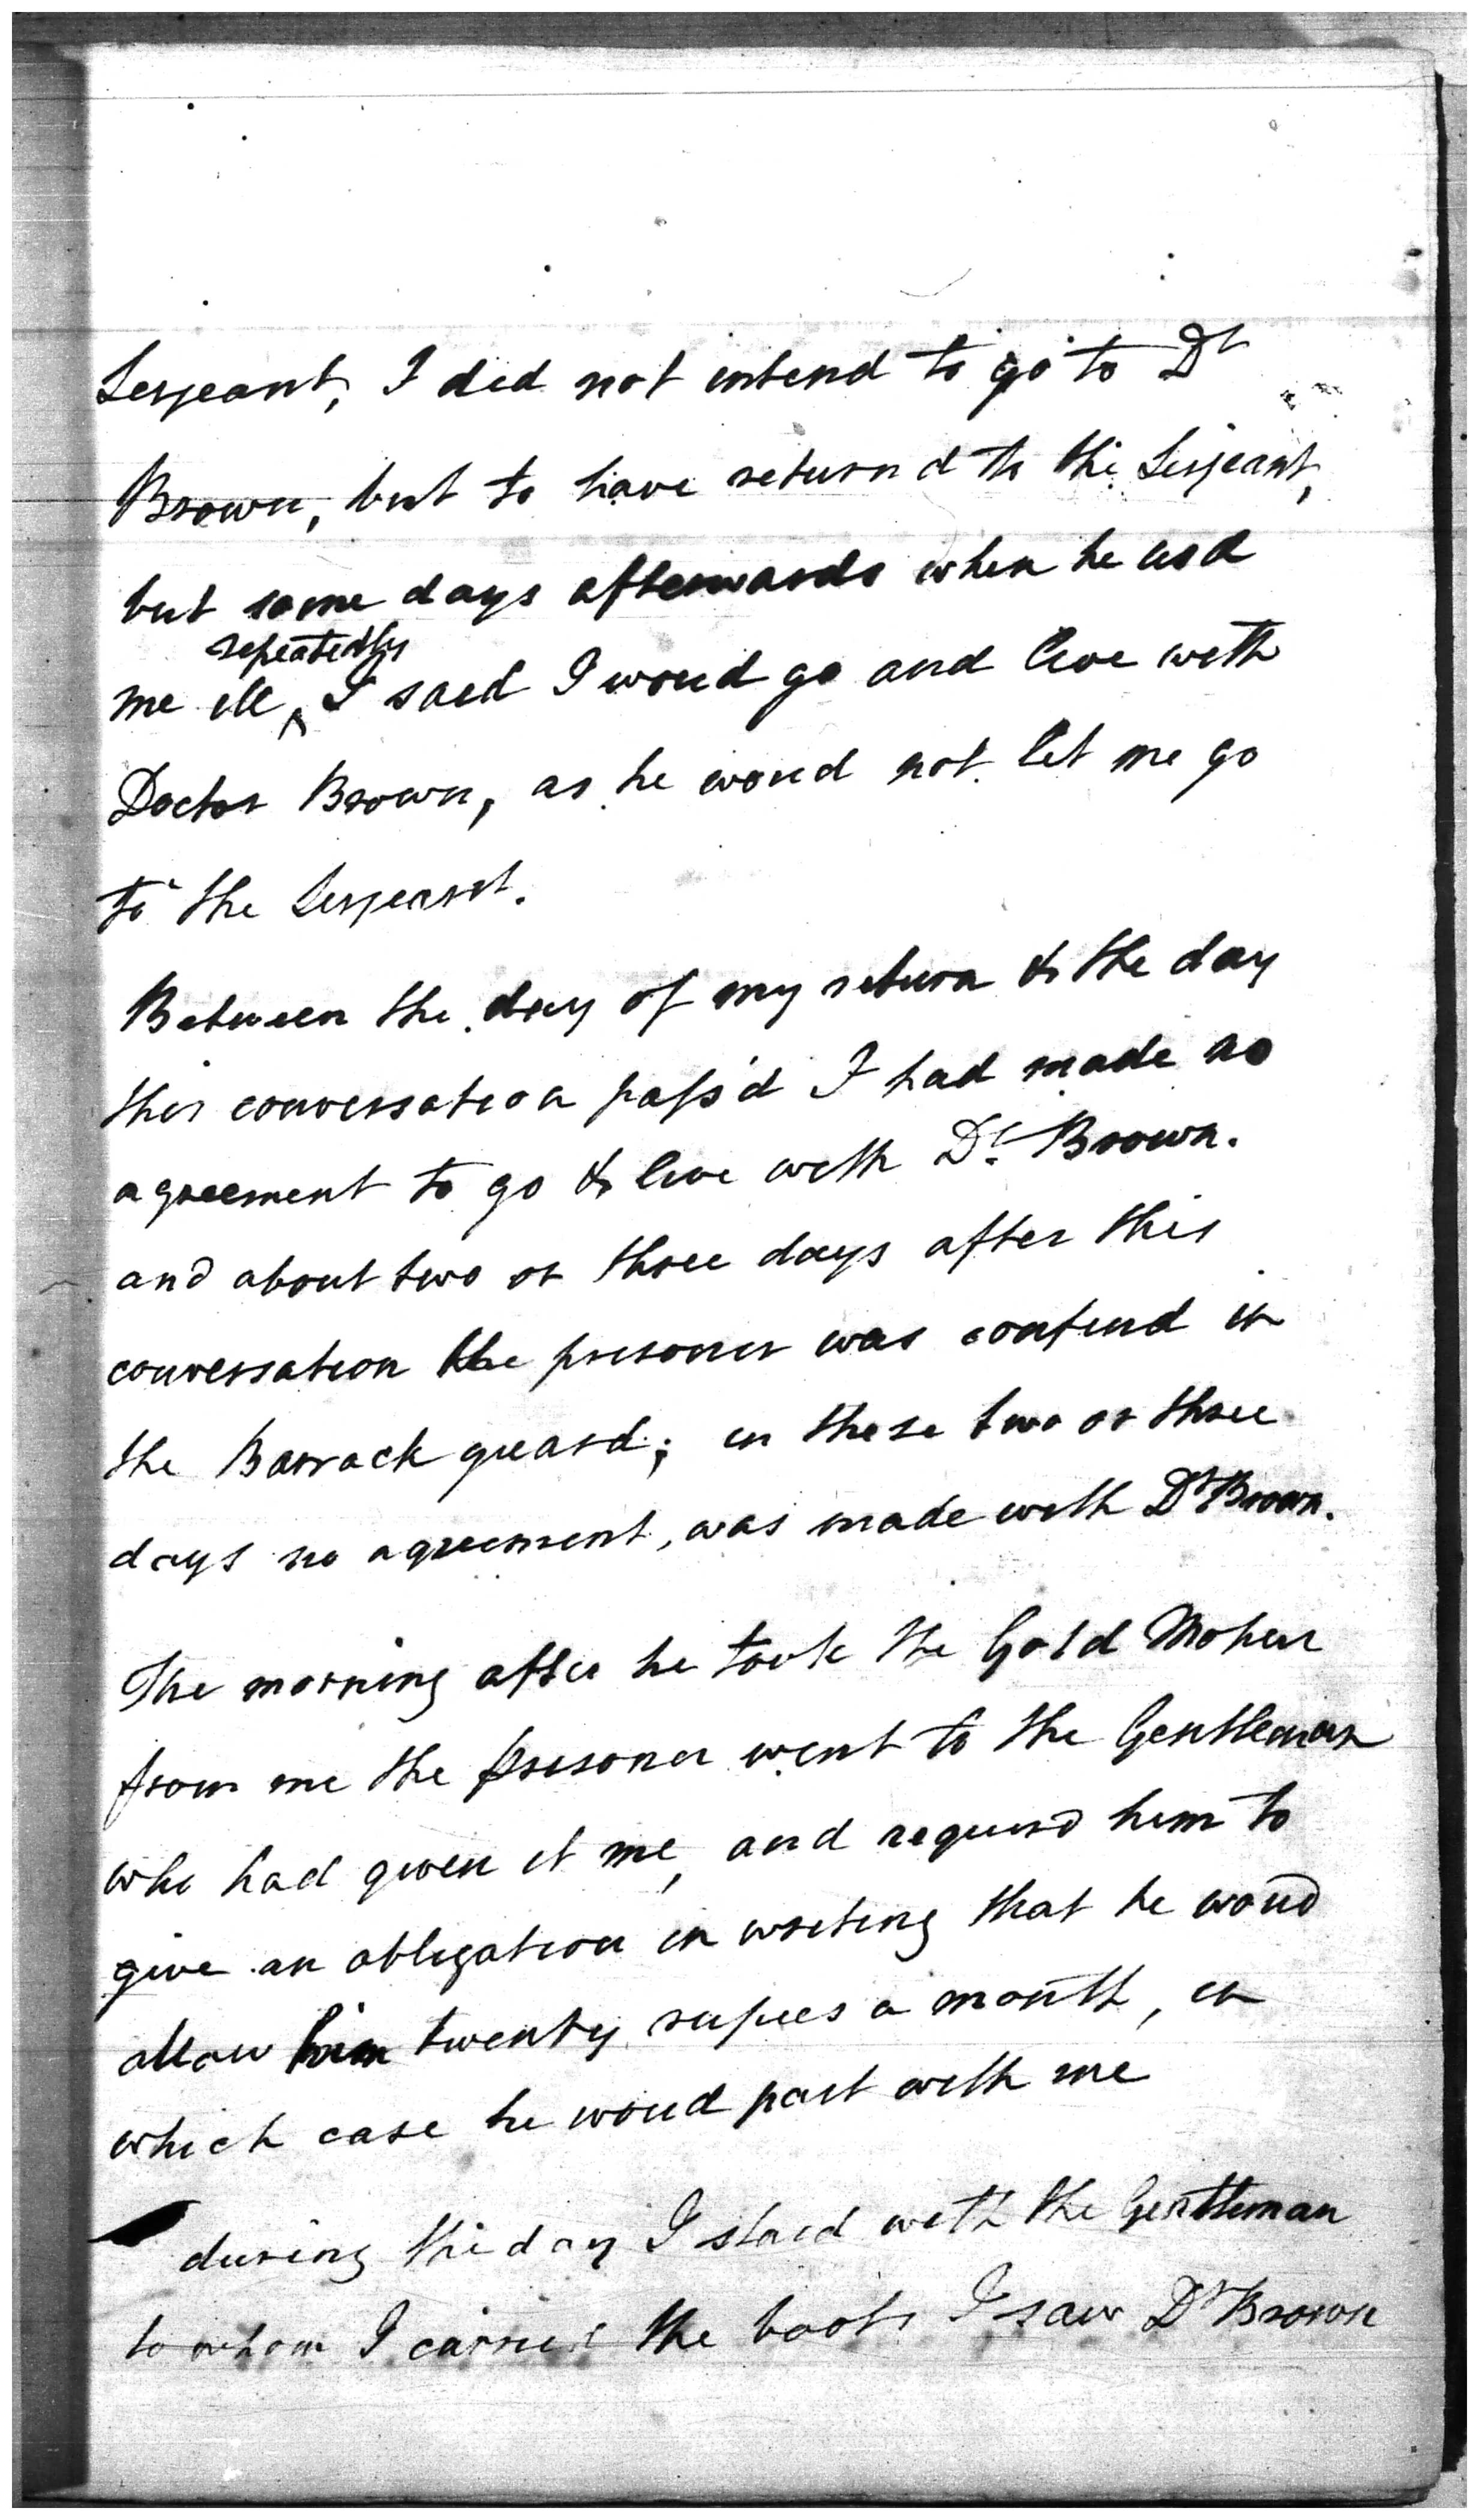 Serjeant, I did not intend to go to Dr
Brown, but to have return d to the Serjeant,
but some days afterwards when he usd
repeatedly
me ill, I said I woud go and live with
Doctor Brown, as he woud not let me go
to the Serjeant.
Between the day of my return & the day
this conversation pass'd I had made no
agreement to go & live with Dr. Brown.
and about two or three days after this
conversation the prisoner was confind in
the Barrack guard; in these two or three
days no agreement, was made with Dr Brown.
The morning after he took the Gold Mohur
from me the prisoner went to the Gentleman
who had given it me, and requird him to
give an obligation in writing that he woud
allow him twenty rupees a month, in
which case he woud part with me
during the day I staid with the Gentleman
to whom I carried the boots I saw Dr Brown